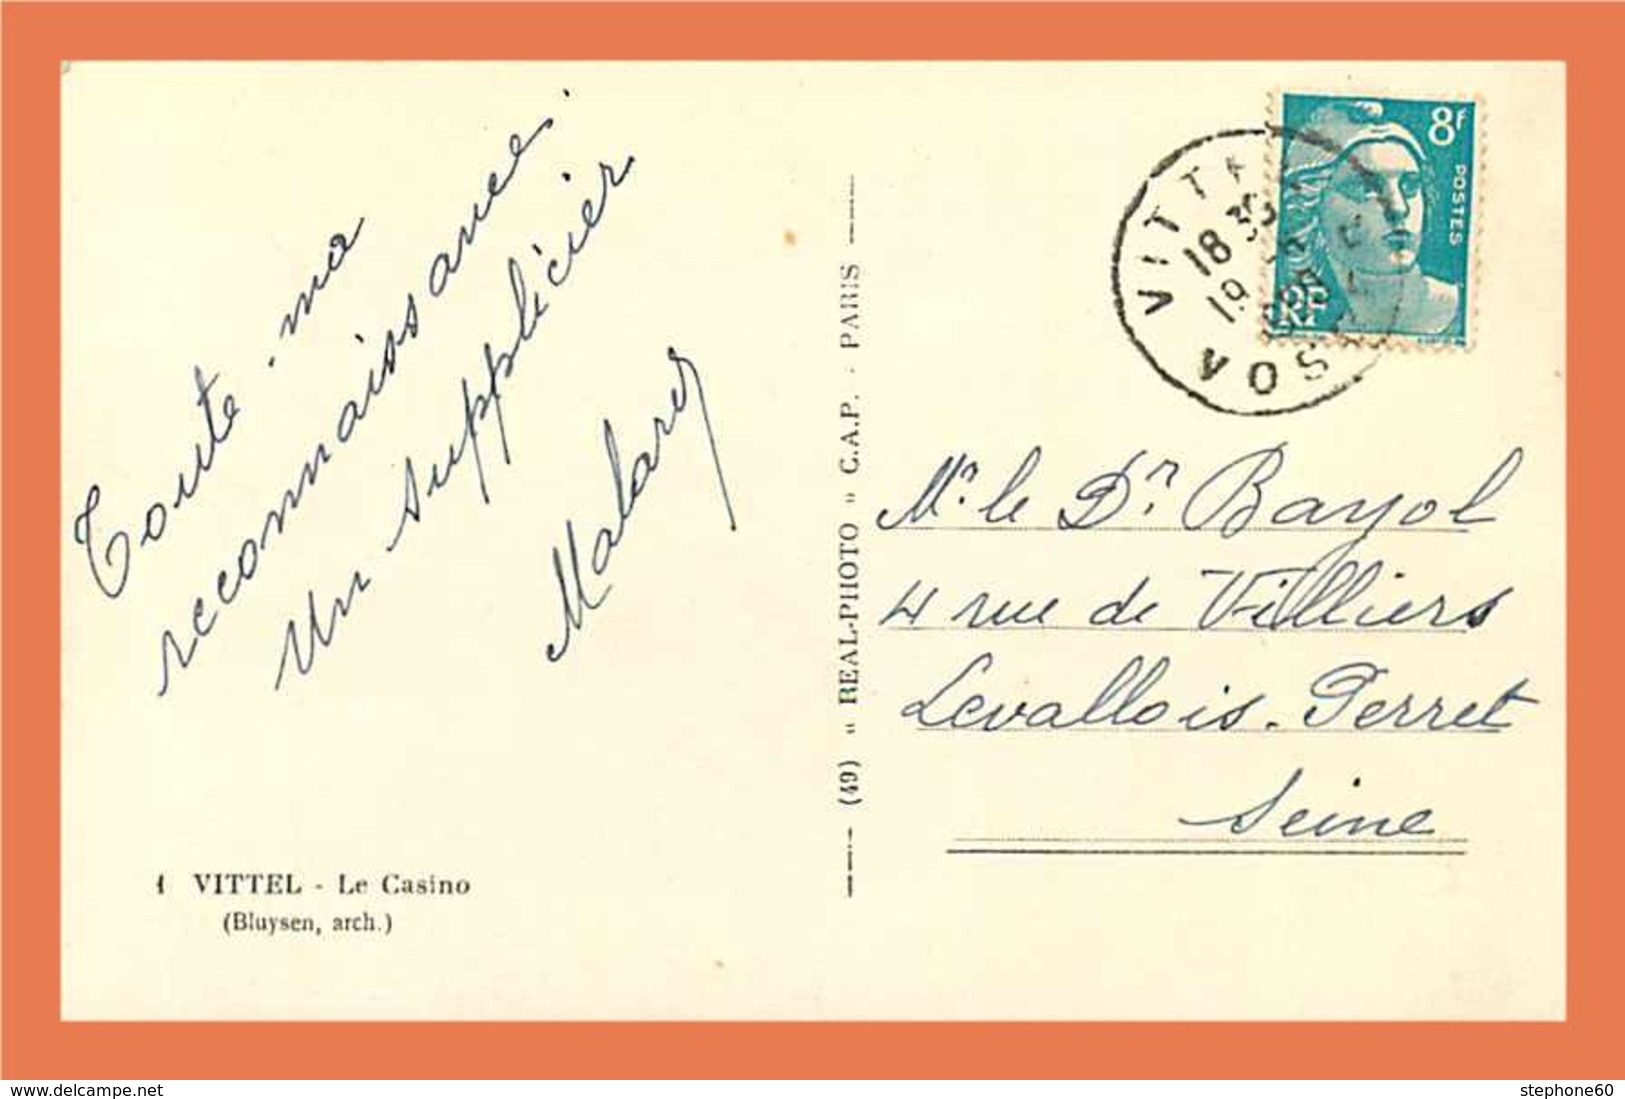 Toute ma
reconnaissance.
Un supplicier
VITTEL
18 30
19
VOS
8f
POSTES
RF
(49) « REAL-PHOTO » C.A.P. - PARIS
Mr. le Dr. Bayol
4 rue de Villiers
Levallois-Perret
Seine
1 VITTEL - Le Casino
(Bluysen, arch.)
www.delcampe.net
stephone60